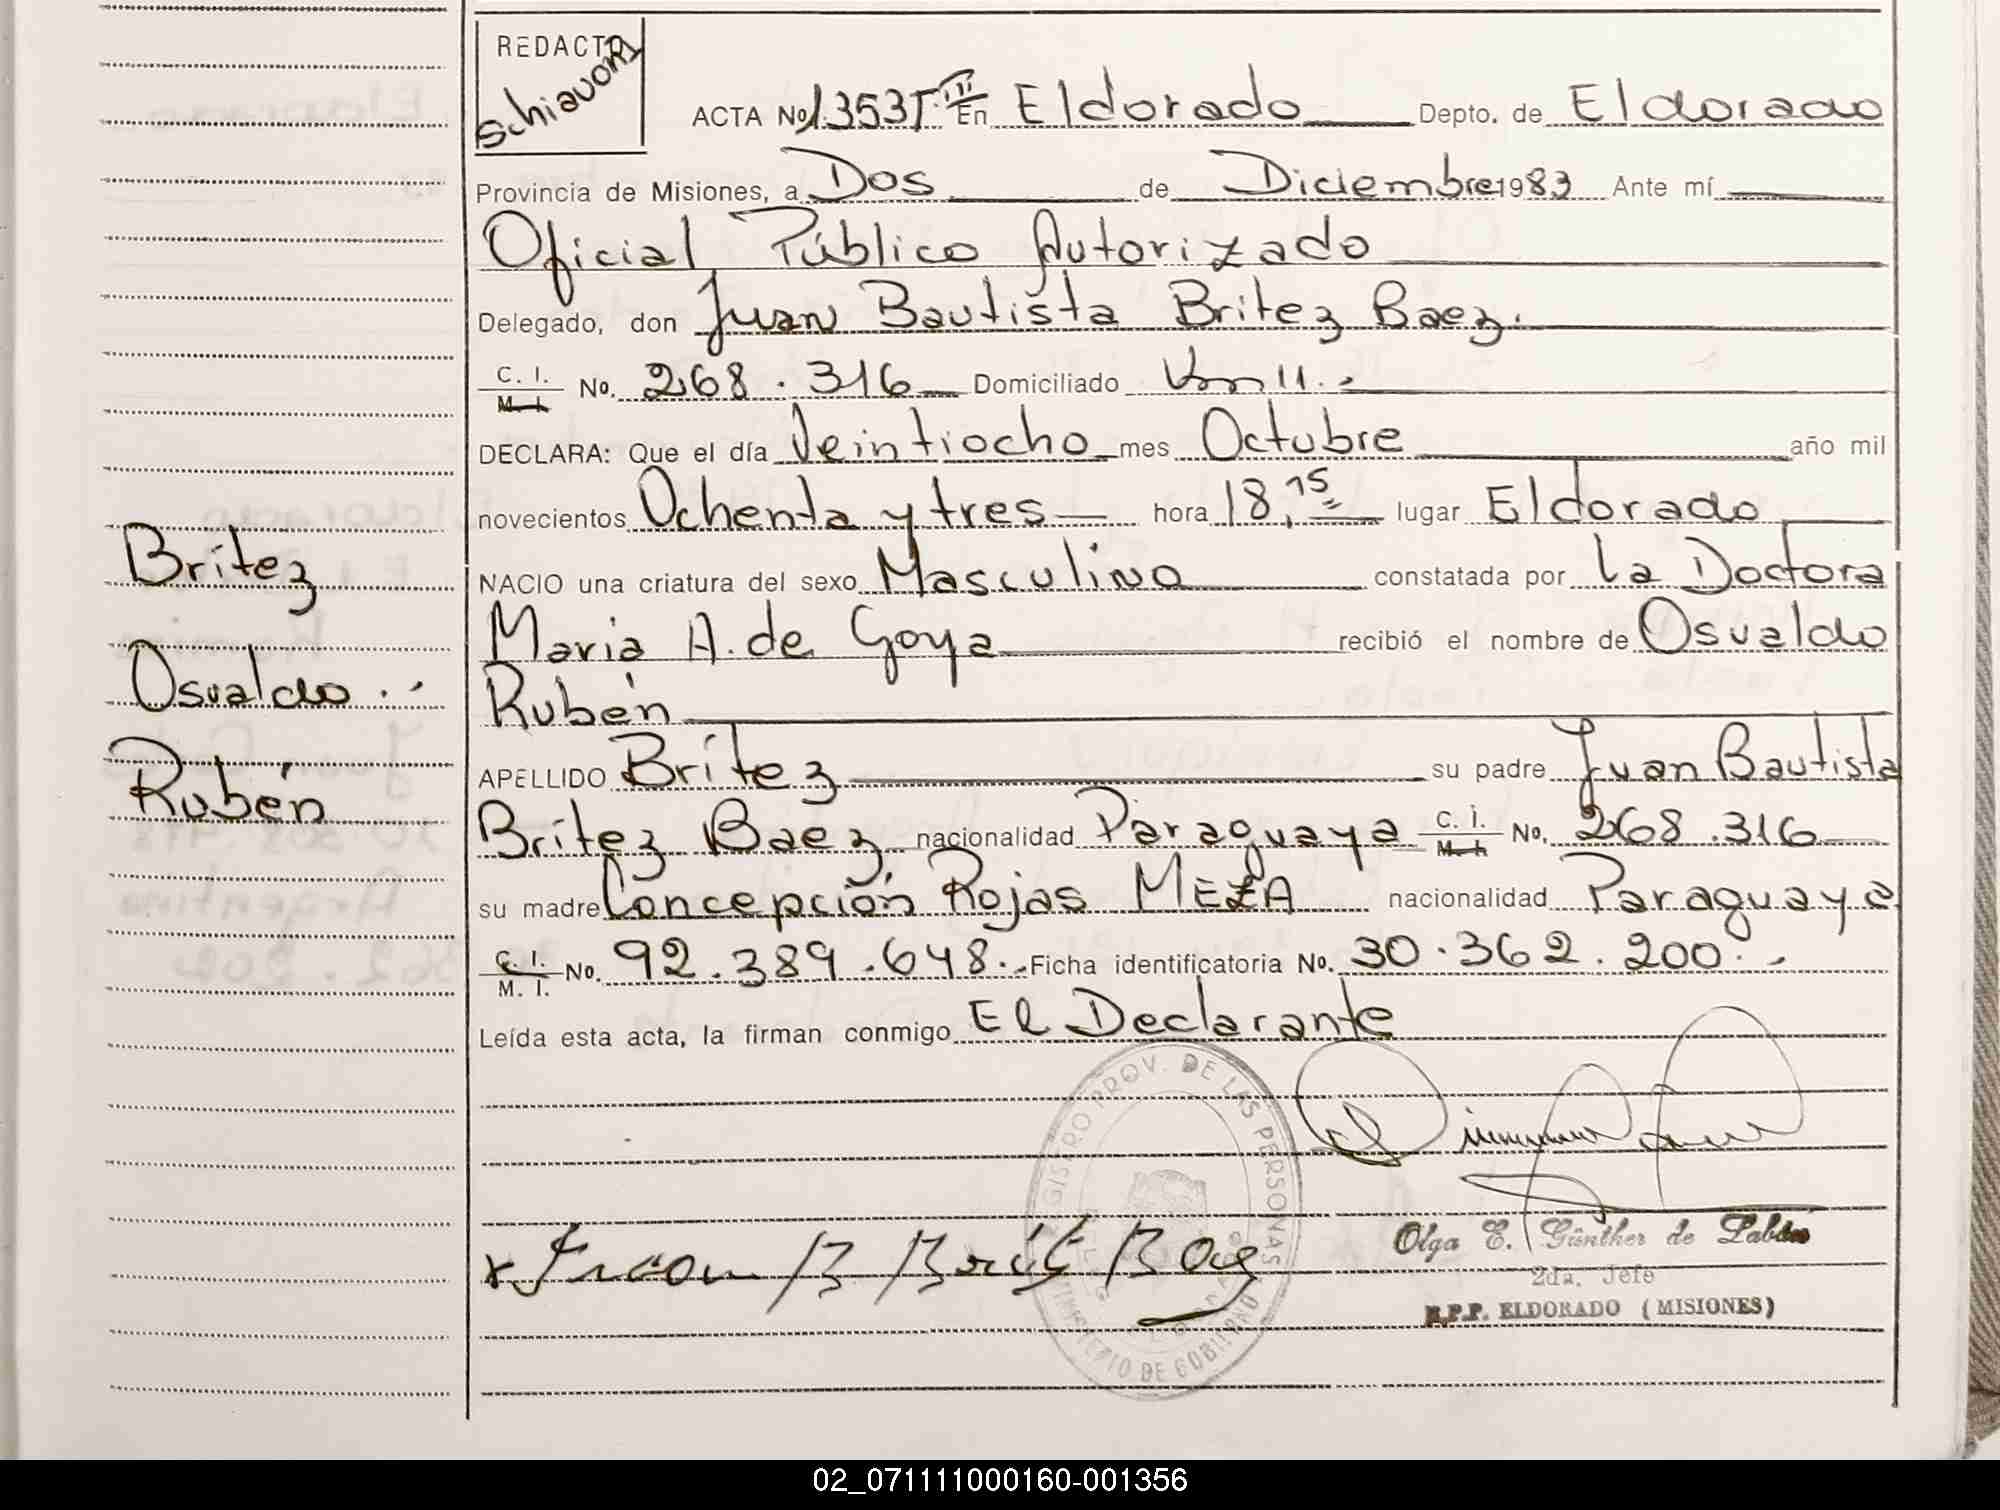 REDACTO
Schiavoni
ACTA No 1.353 T. III En Eldorado Depto. de Eldorado
Provincia de Misiones, a Dos de Diciembre 1983 Ante mí
Oficial Público Autorizado
Delegado, don Juan Bautista Britez Baez.
C. I. M. I. No. 268.316 Domiciliado Km 11.-
DECLARA: Que el día Veintiocho mes Octubre año mil
novecientos Ochenta y tres hora 18,15 lugar Eldorado
NACIO una criatura del sexo Masculino constatada por la Doctora
Maria A. de Goya recibió el nombre de Osvaldo
Rubén
APELLIDO Brítez su padre Juan Bautista
Brítez Baez, nacionalidad Paraguaya C. I. M. I. No. 268.316
su madre Concepción Rojas MEZA nacionalidad Paraguaya
C. I. M. I. No. 92.389.648.- Ficha identificatoria No. 30.362.200.-
Leída esta acta, la firman conmigo El Declarante
Brítez
Osvaldo.-
Rubén
REGISTRO PROV. DE LAS PERSONAS
MINISTERIO DE GOBIERNO
x Juan B Brítez Baez
Olga E. Günther de
2da. Jefe
R.P.P. ELDORADO (MISIONES)
02_071111000160-001356